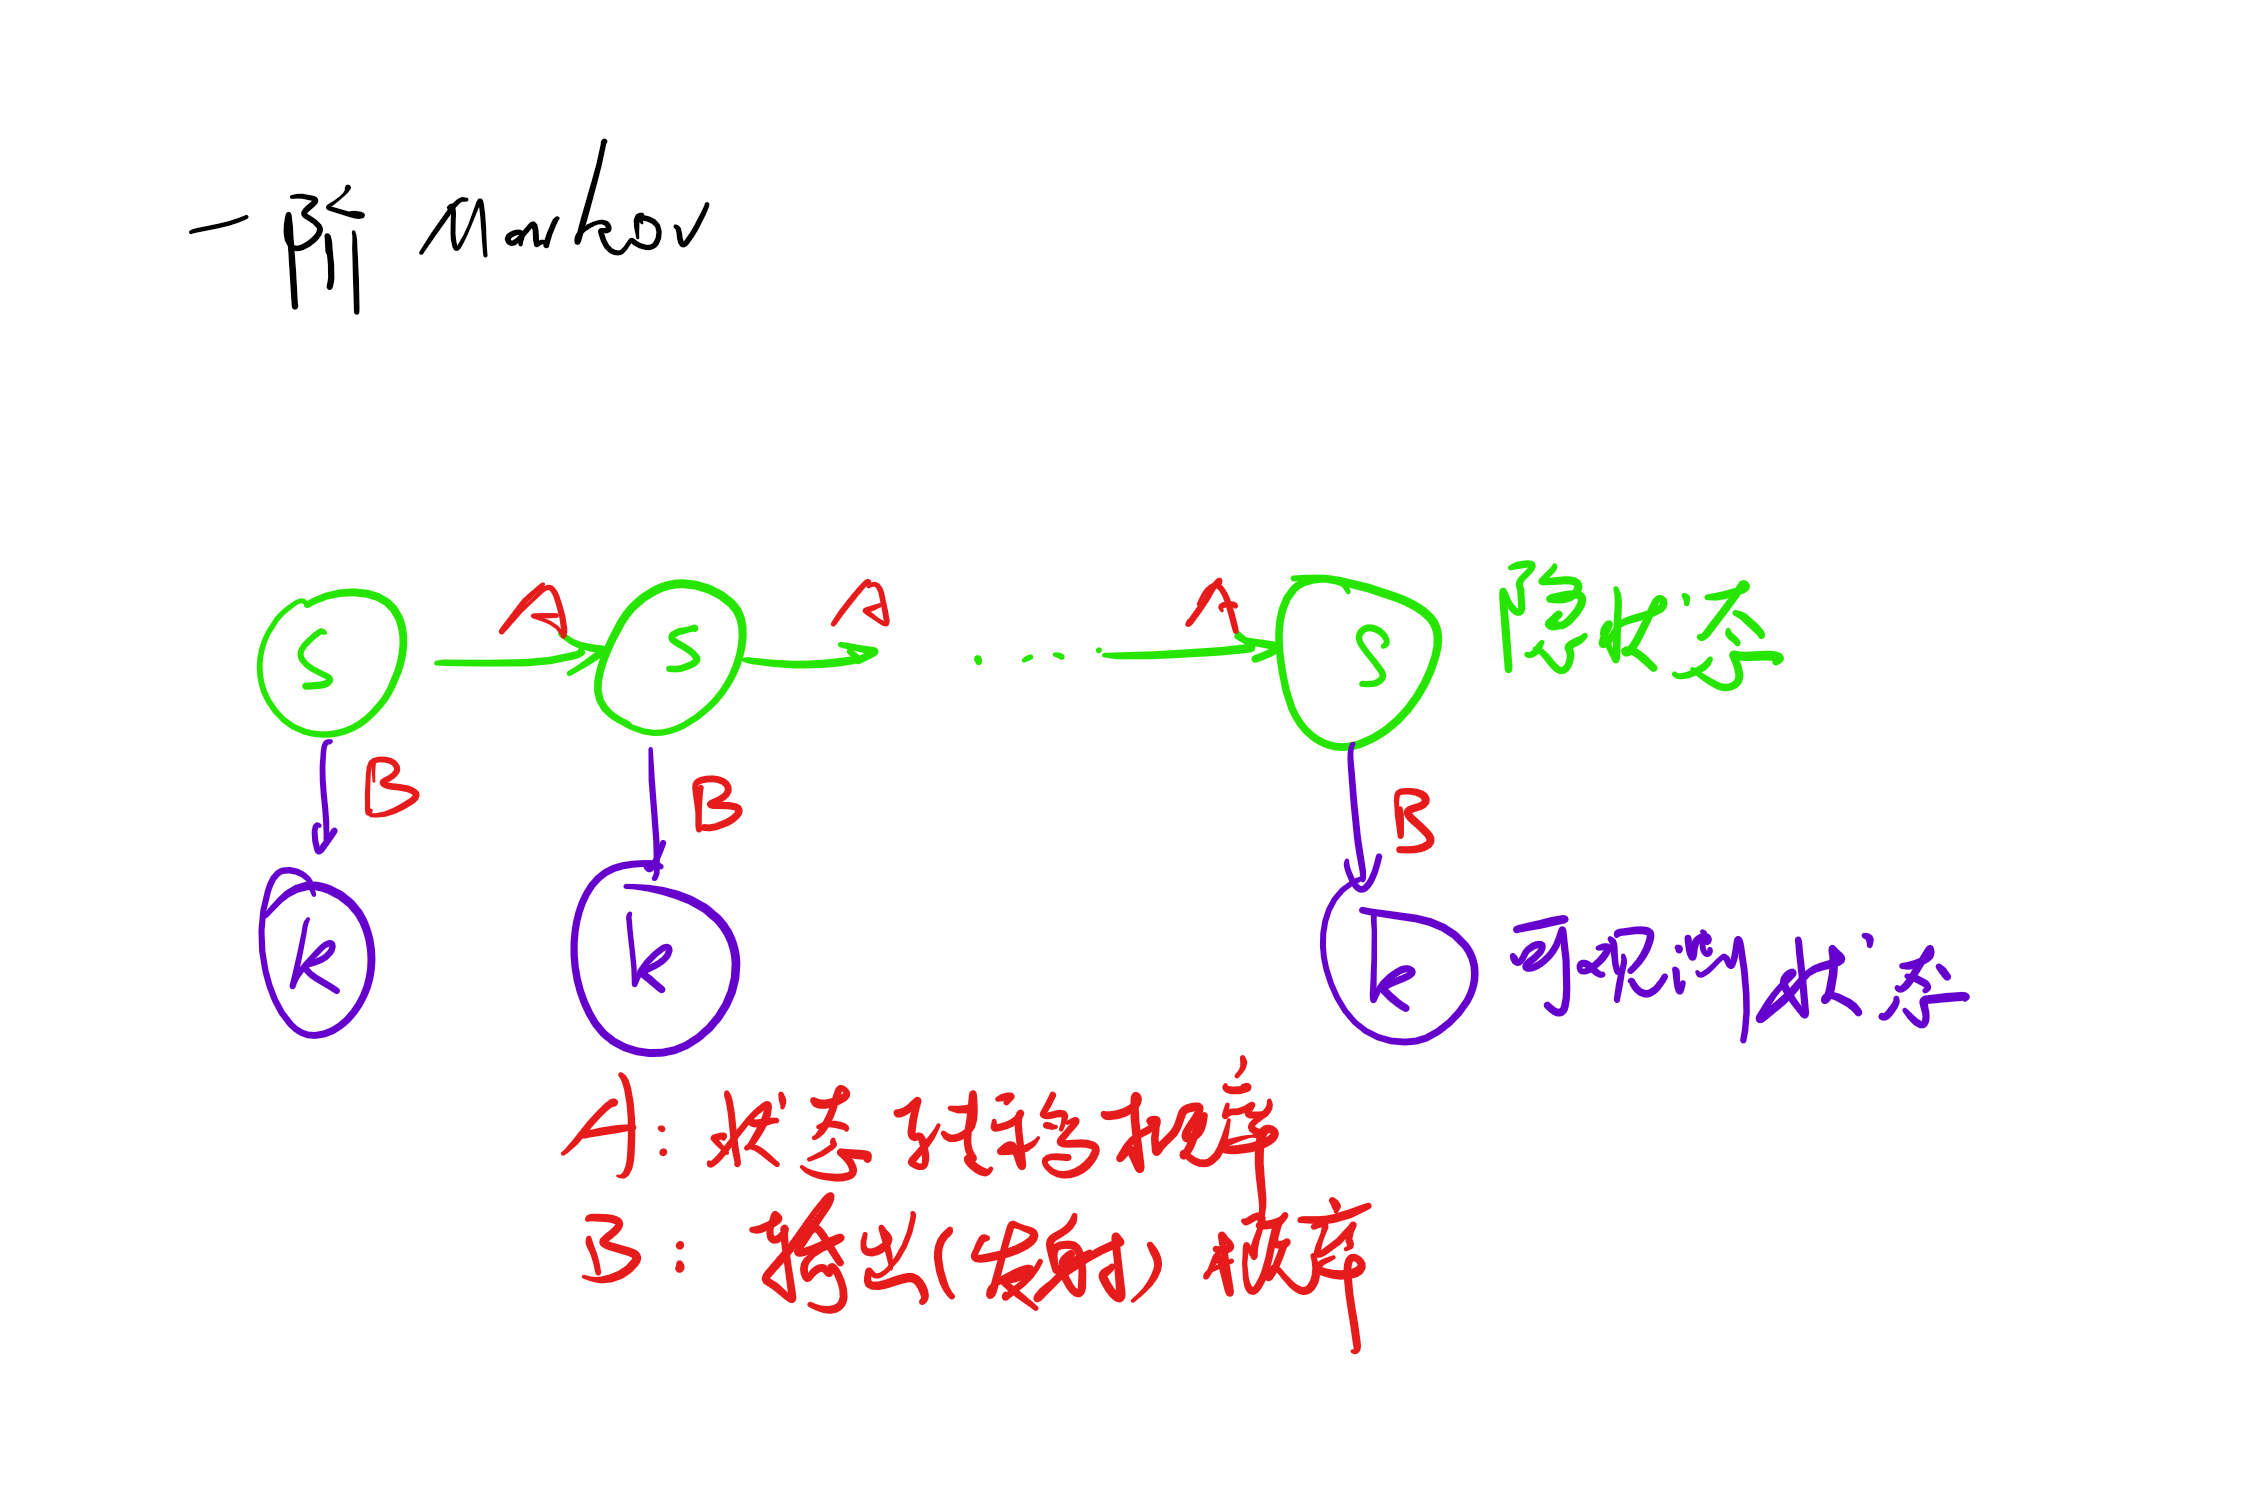 一阶 Markov
A A A
S S S 隐状态
B B B
k k k 可观测状态
A: 状态转移概率
B: 输出(发射)概率